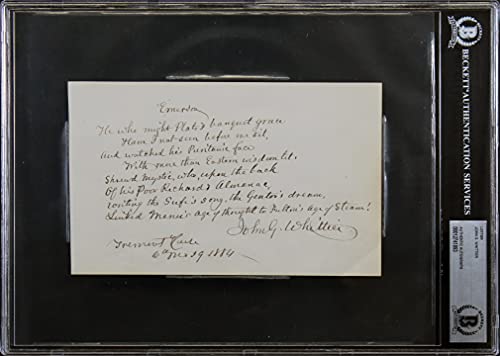 Emerson
He who might Plato's banquet grace
Have I not seen before me sit,
And watched his Puritanic face
With more than Eastern wisdom lit.
Shrewd Mystic, who, upon the back
Of his Poor Richard's Almanac,
writing the Sufi's song, the Gentoo's dream,
Linked Manu's age of thought to Fulton's Age of Steam!
John G. Whittier
Tremont House
19. 1884
BECKETT AUTHENTICATION SERVICES
BECKETT